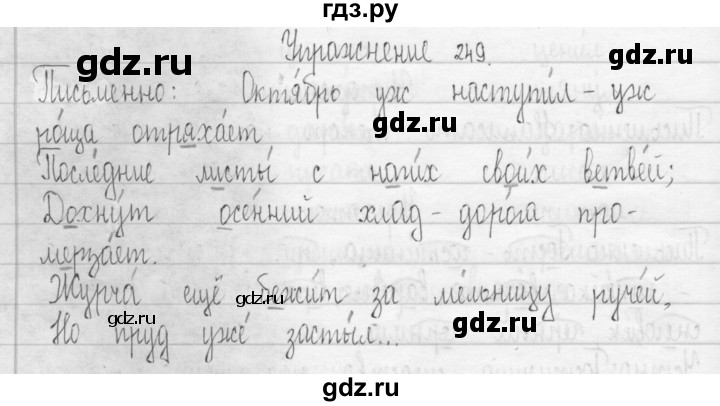 гдз.ру
Упражнение 249.
gdz.ru
gdz.ru
Письменно: Октя́брь уж наступи́л - уж
ро́ща отряха́ет
gdz.ru
После́дние листы́ с наги́х свои́х ветве́й;
Дохну́л осе́нний хлад - доро́га про-
мерза́ет.
Журча́ ещё бежи́т за ме́льницу руче́й,
gdz.ru
gdz.ru
gdz.ru
Но пруд уже́ засты́л...
gdz.ru